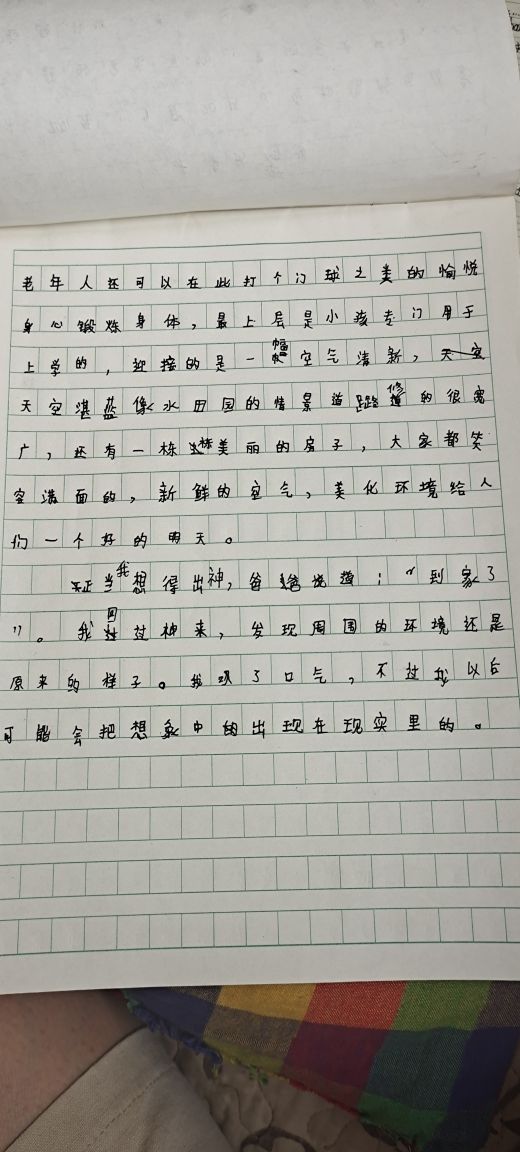 老年人还可以在此打个门球之类的愉悦
身心锻炼身体，最上层是小孩专门用于
上学的，迎接的是一幅空气清新，
天空湛蓝像水田园的情景道路修的很宽
广，还有一栋栋美丽的房子，大家都笑
容满面的，新鲜的空气，美化环境给人
们一个好的明天。
正当我想得出神，爸爸说道：“到家了
”。我回过神来，发现周围的环境还是
原来的样子。我叹了口气，不过我以后
可能会把想象中的出现在现实里的。